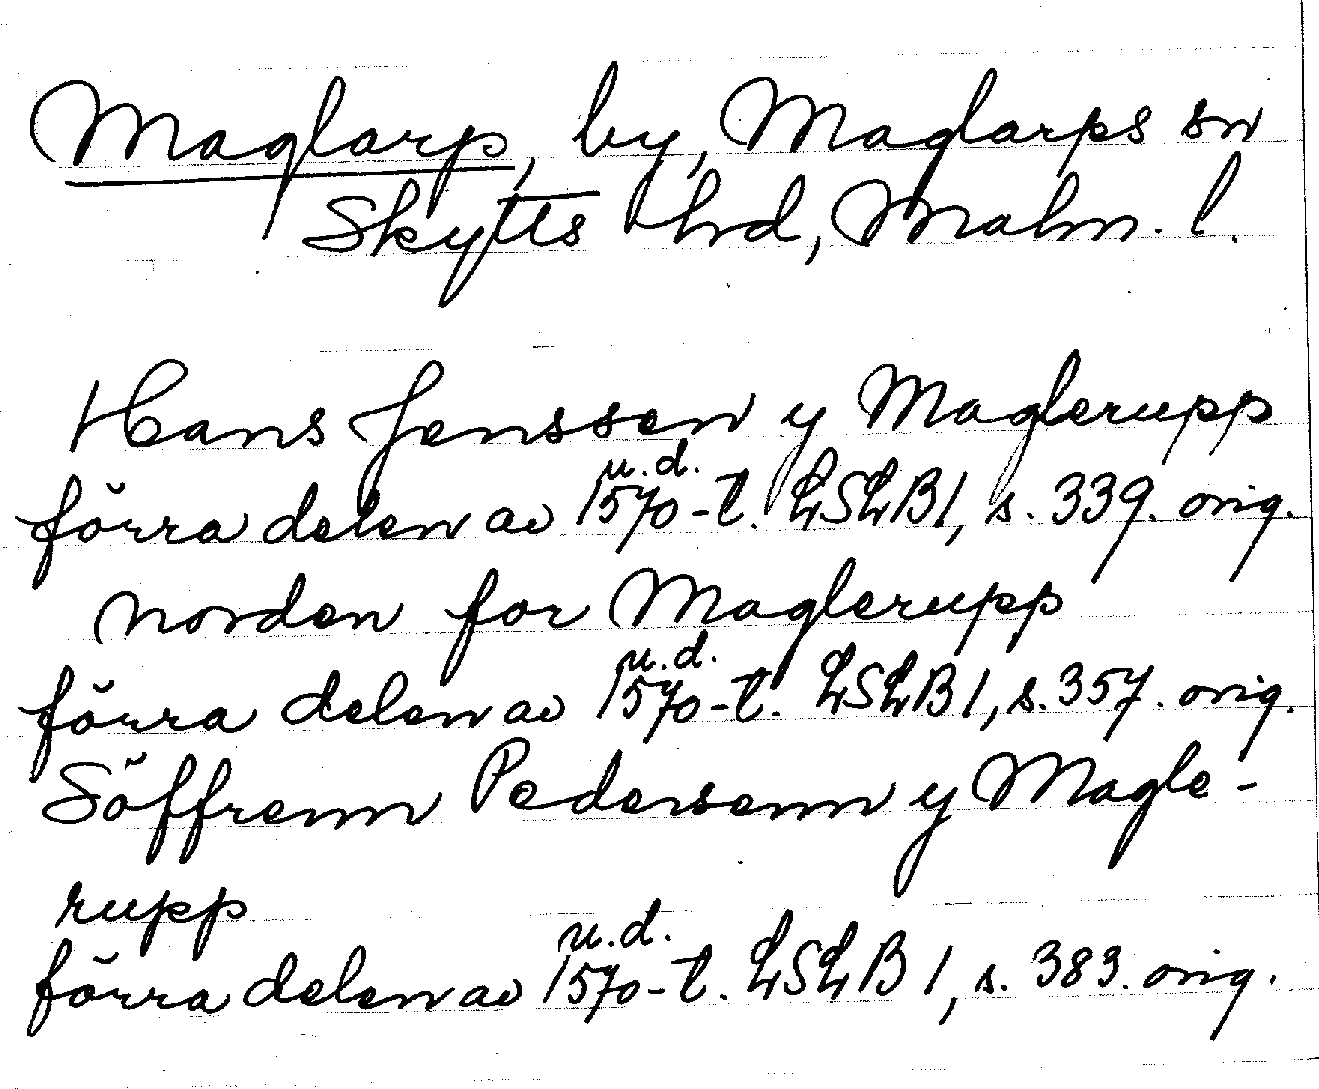 Maglarp, by, Maglarps sn
Skytts hrd, Malm. l.
Hans Jenssen y Maglerupp
u.d.
förra delen av 1570-t. LSLB1, s. 339. orig.
norden for Maglerupp
u.d.
förra delen av 1570-t. LSLB1, s. 357. orig.
Söffrenn Pedersenn y Magle-
rupp
u.d.
förra delen av 1570-t. LSLB1, s. 383. orig.